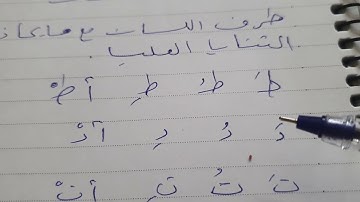 طرف اللسان مع ما يحاذ
الثنايا العليا.
طَ طُ طِ أطْ
دَ دُ دِ أدْ
تَ تُ تِ أتْ